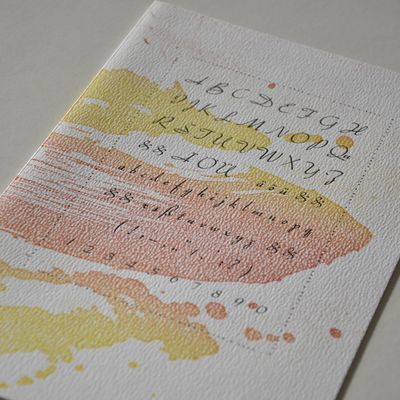 A B C D E F G H
I J K L M N O P Q Qu
R S T U V W X Y Z
&& I O U äöü &&
a b c d e f g h i j k l m n o p q
&& r s ß t u v w x y z &&
1 2 3 4 5 6 7 8 9 0